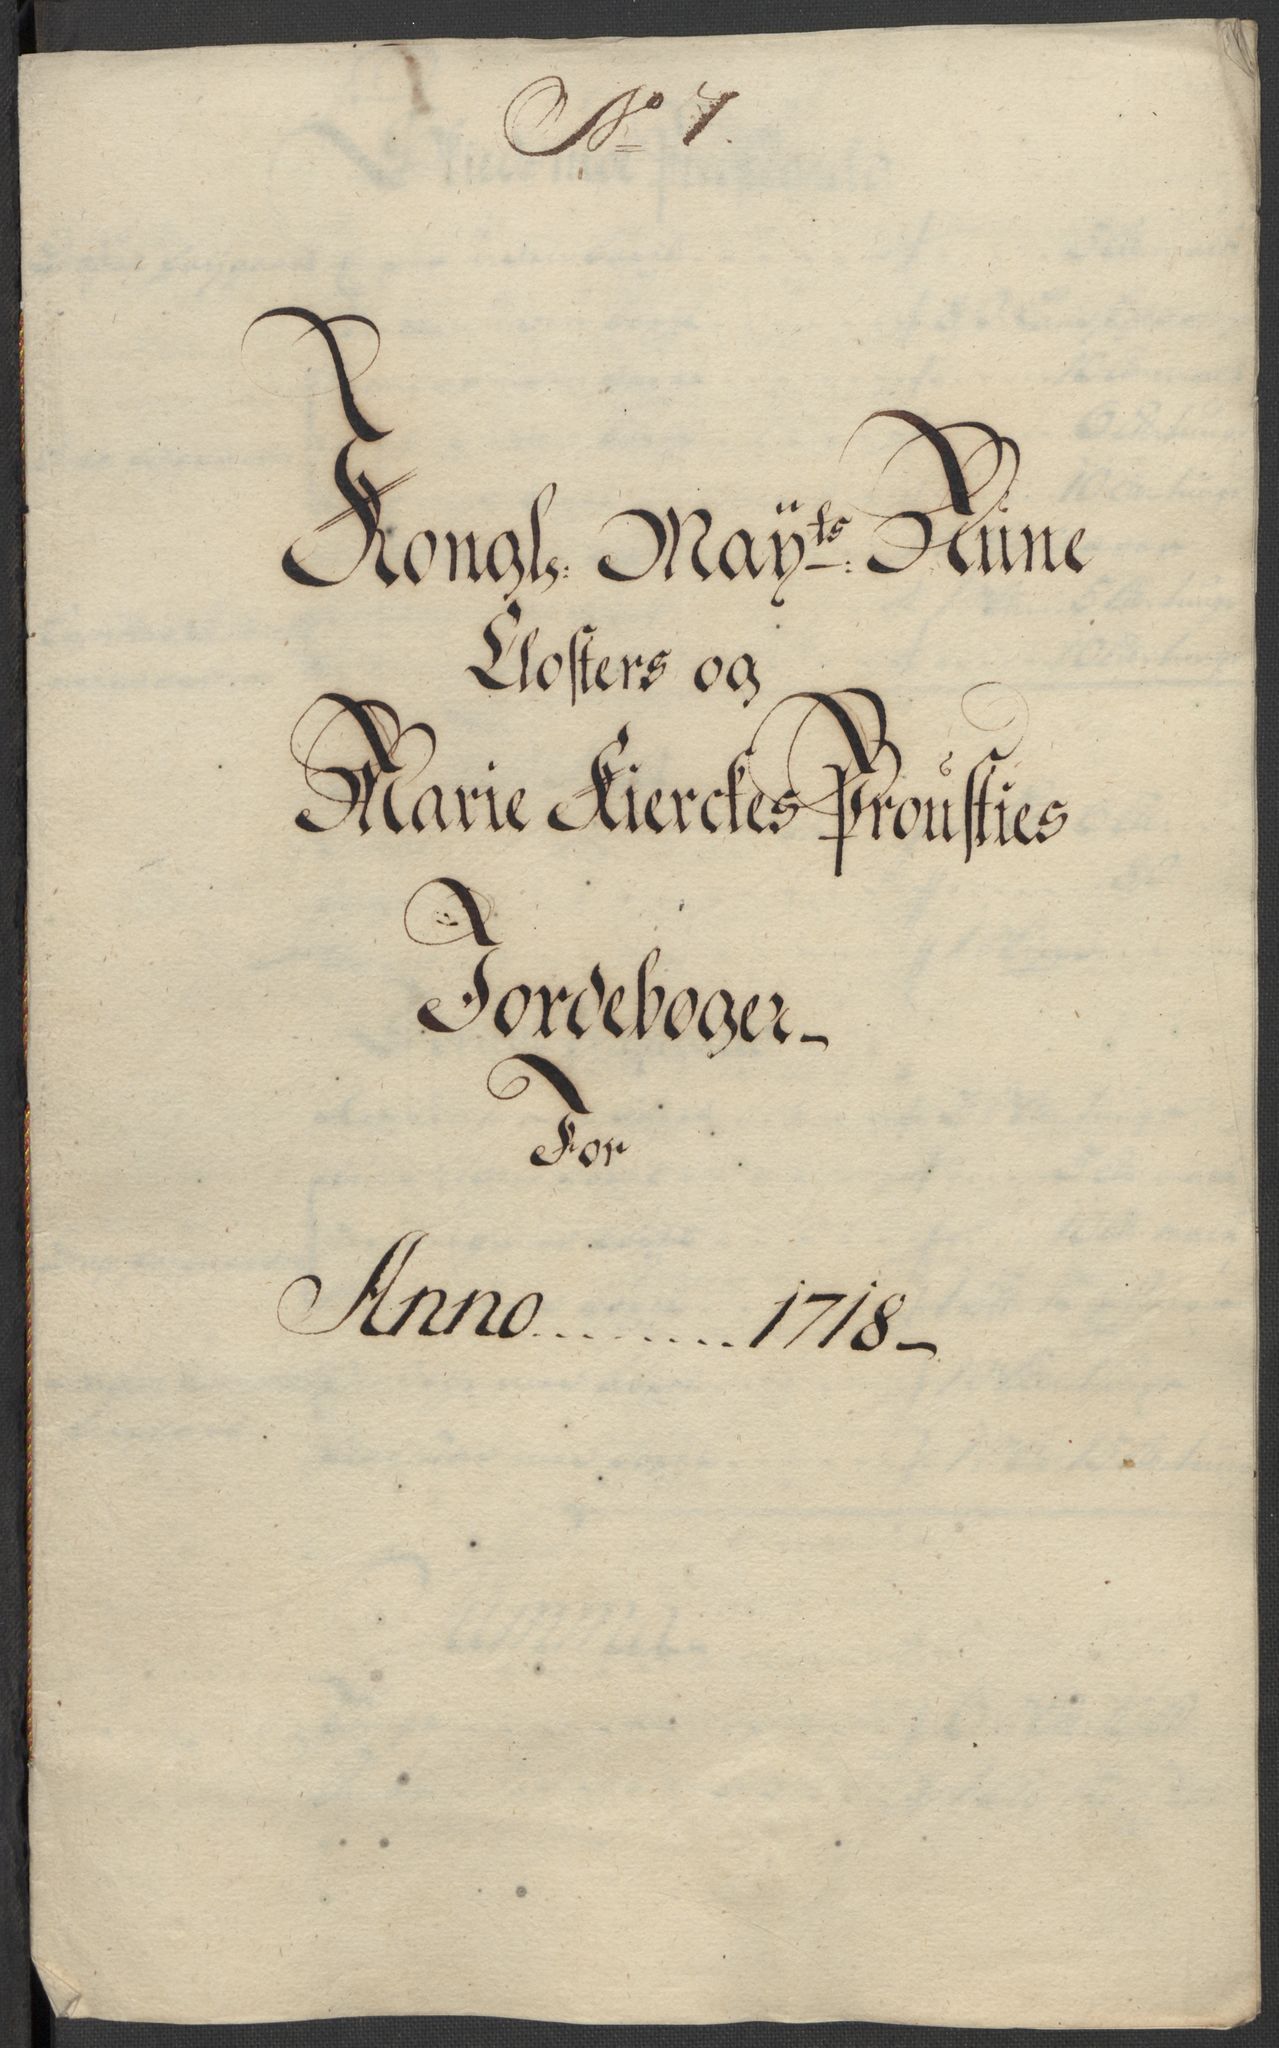 No 7.
Kongls: Maÿts: Rüne
Closters og
Marie Kierckes Proústies
Jordeboger
For
Anno ........ 1718